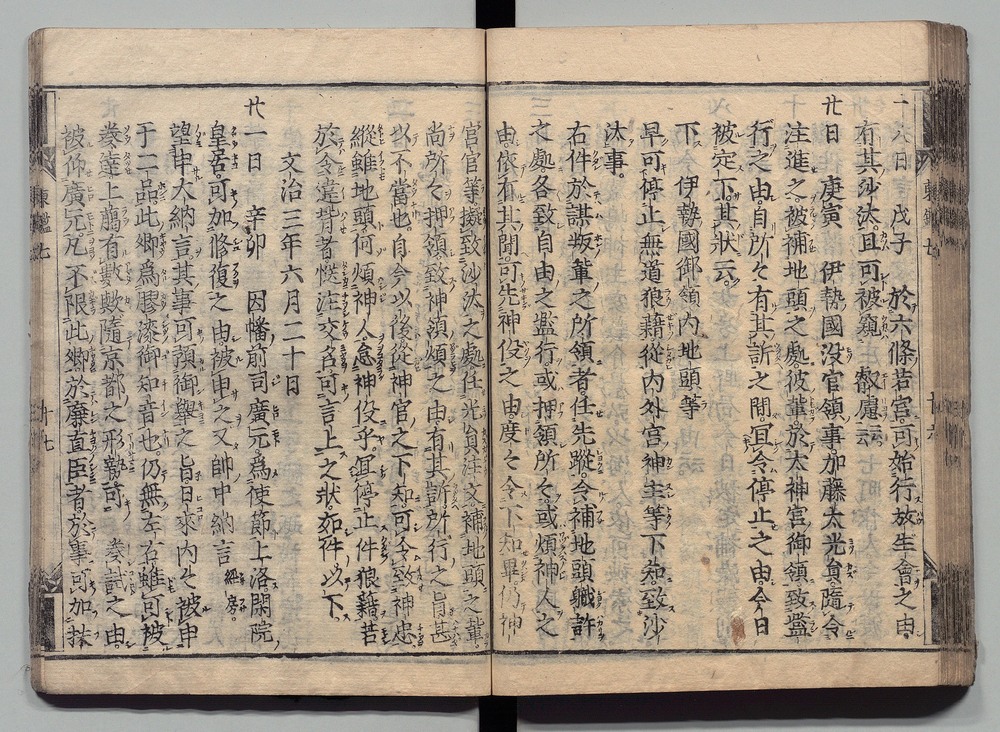 一八日 戊子 於六條若宮可始行放生會之由
有其沙汰且可被窺 叡慮云云
廿日 庚寅 伊勢國没官領事加藤太光員隨令
注進之被補地頭之處彼輩於太神宮御領致濫
行之由自所々有其訴之間冝令停止之由今日
被定下其狀云
下 伊勢國御領内地頭等
早可停止無道狼藉從内外宮神主等下知致沙
汰事
右件於謀叛輩之所領者任先蹤令補地頭軄許
之處各致自由之濫行或押領所々或煩神人之
由依有其聞可先神役之由度々令下知畢仍神
官官等擬致沙汰之處任光員注文補地頭之輩
尚所々押領致神領煩之由有其訴所行之旨甚
以不當也自今以後從神官之下知可令致神忠
縱雖地頭何煩神人怠神役乎冝停止件狼藉若
於令違背者慥注交名可言上之狀如件以下
文治三年六月二十日
廿一日 辛卯 因幡前司廣元爲使節上洛閑院
皇居可加修復之由被申之又帥中納言經房
望申大納言其事可預御擧之旨日來内々被申
于二品此卿爲膠漆御知音也仍無左右雖可被
擧達上﨟有數歟隨京都之形勢可 擧試之由
被仰廣元凡不限此卿於廉直臣者於事可加扶
東鑑七
十七